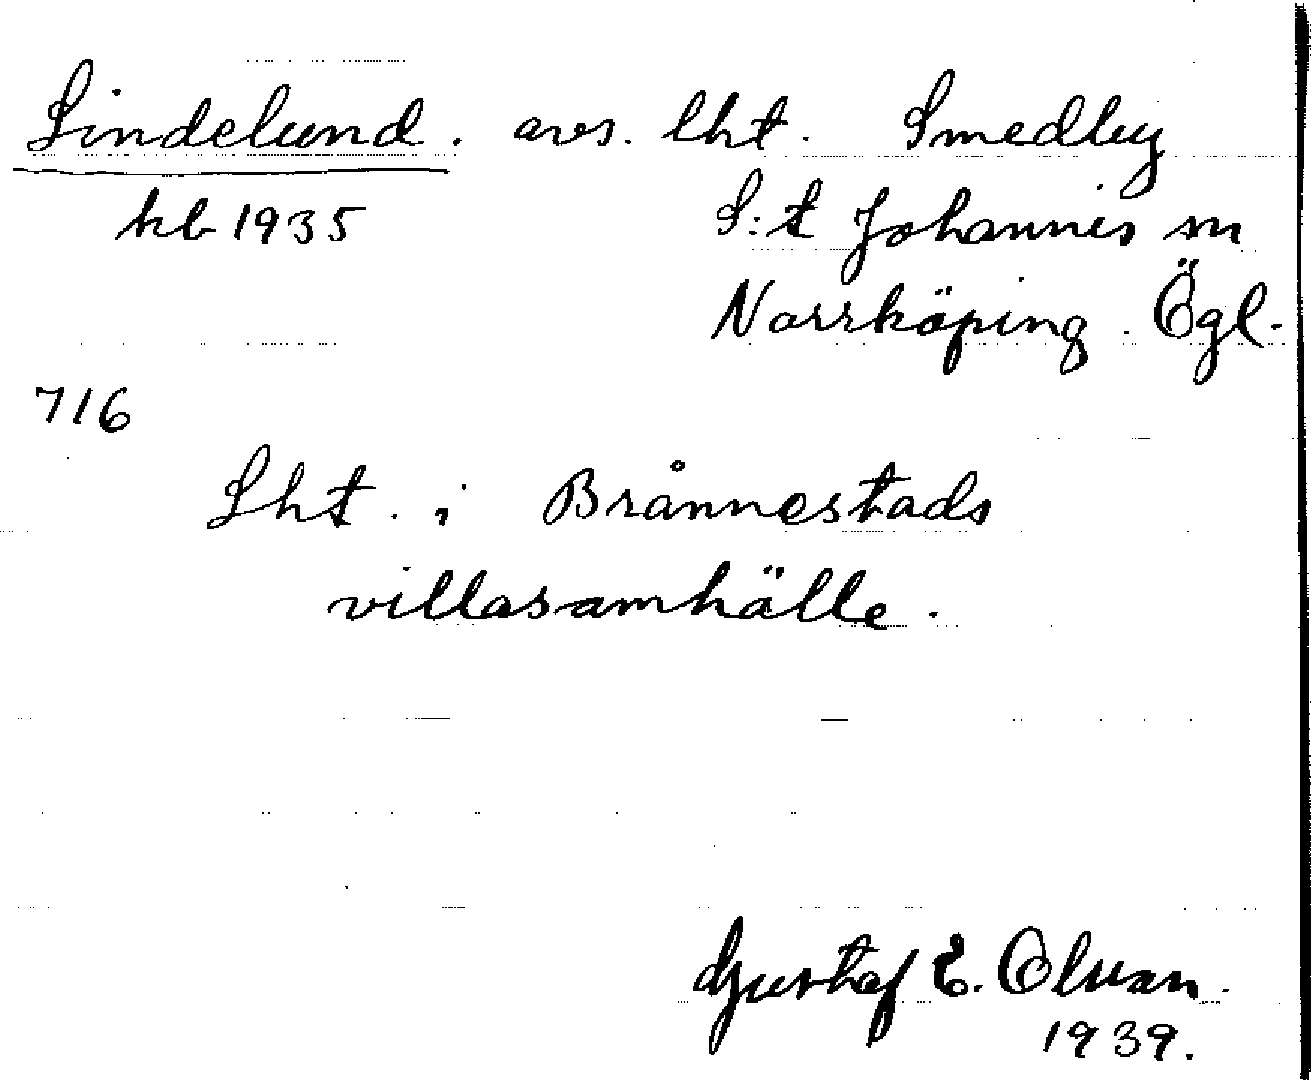 Lindelund. avs. lht. Smedby
kb 1935 S:t Johannis sn
Norrköping. Ögl.
716
Lht. i Brånnestads
villasamhälle.
Gustaf E.
1939.